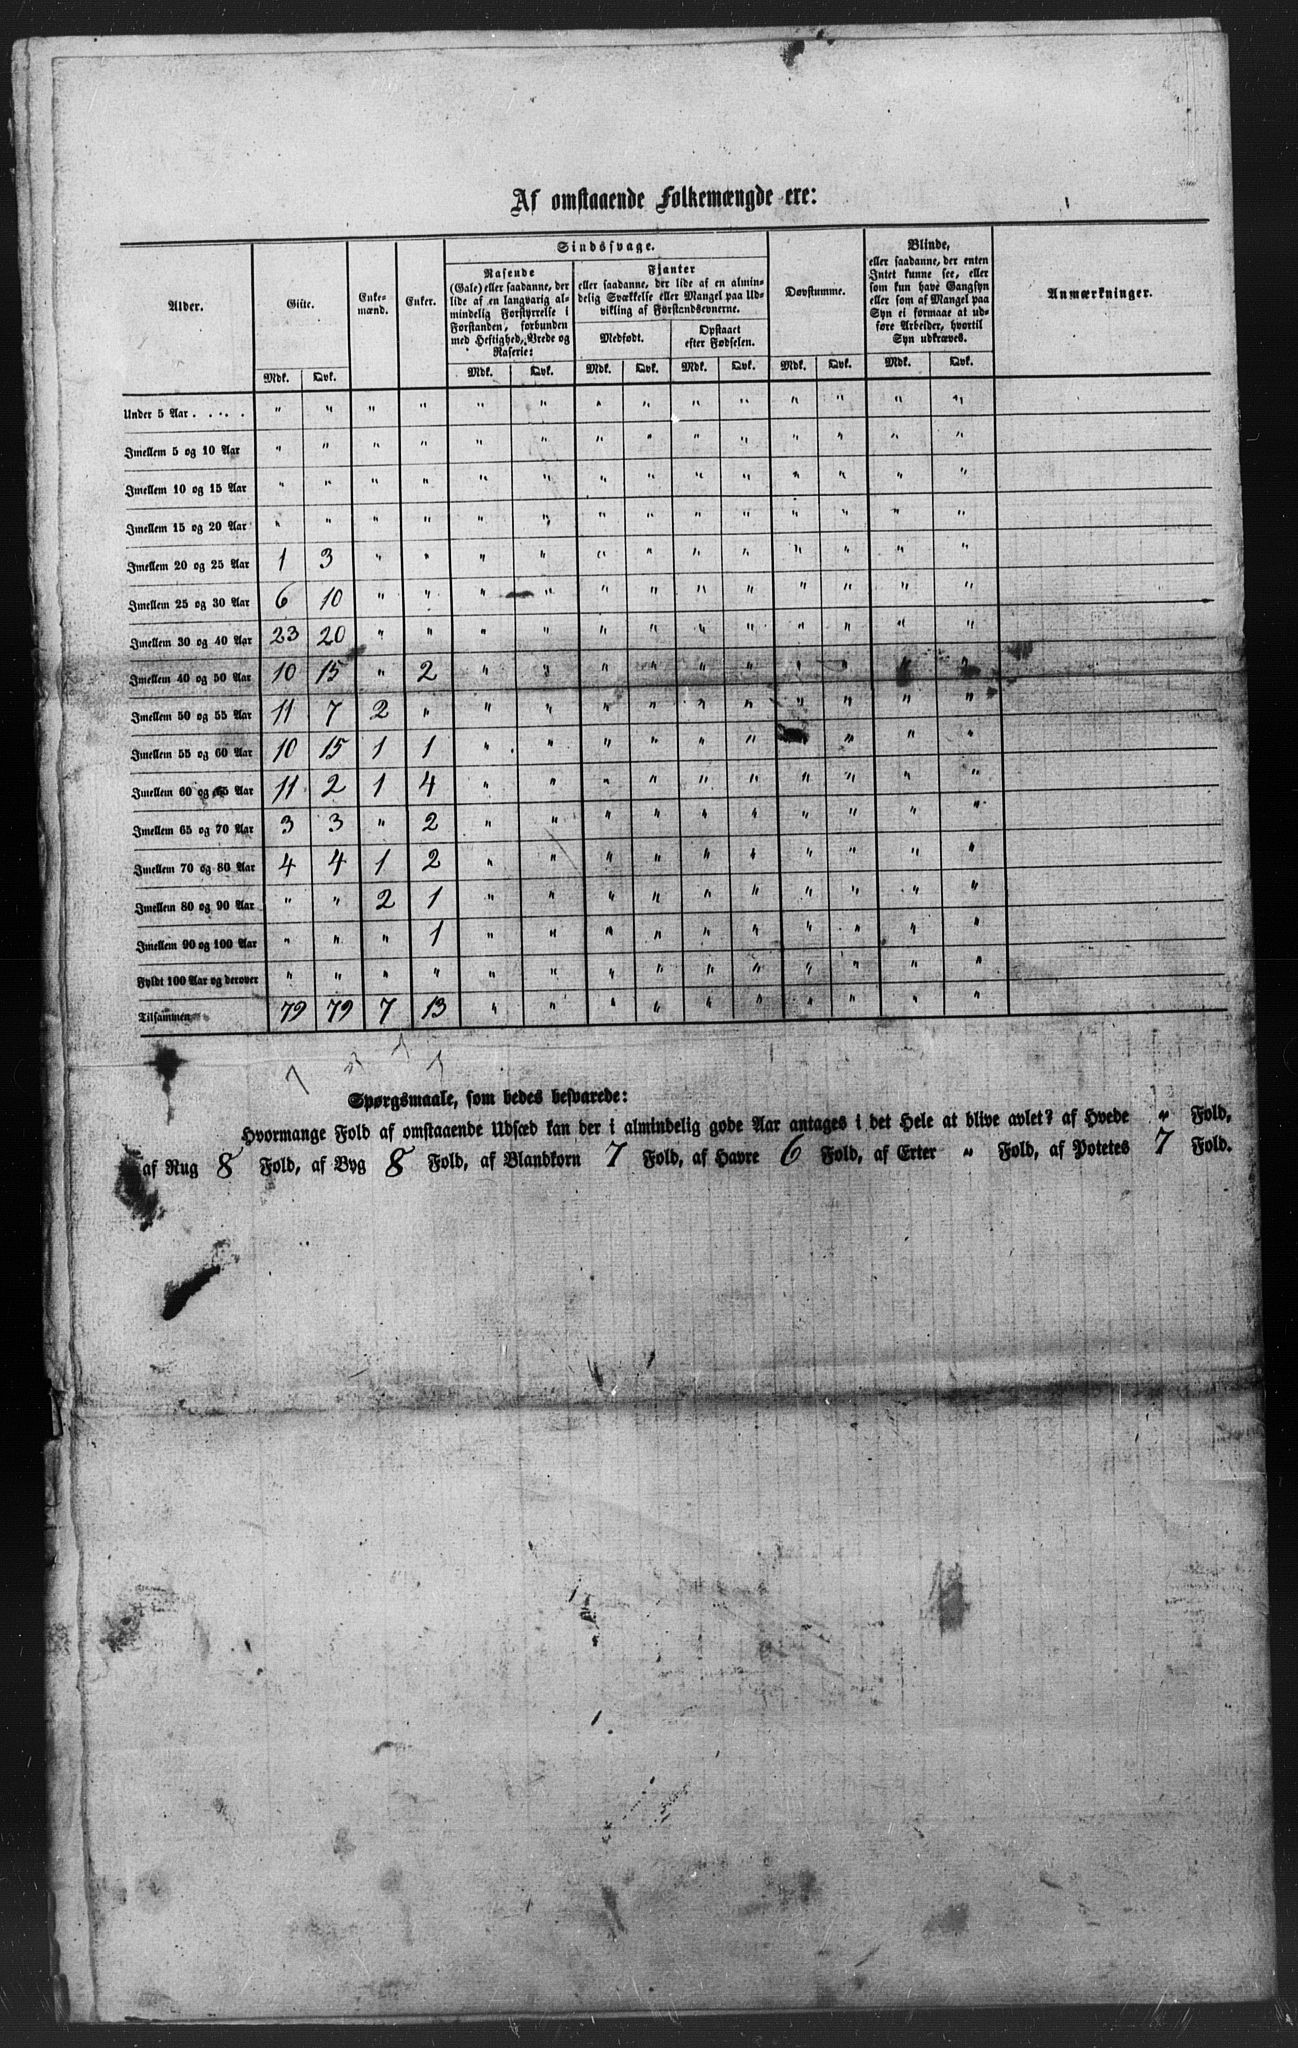 Af omstaaende Folkemængde ere:
Alder. Gifte. Enkemænd. Enker. Sindssvage. Døvstumme. Blinde, eller saadanne, der enten Intet kunne see, eller som kun have Gangsyn eller som af Mangel paa Syn ei formaae at udføre Arbeider, hvortil Syn udkræves. Anmærkninger.
Rasende (Gale) eller saadanne, der lide af en langvarig almindelig Forstyrrelse i Forstanden, forbunden med Heftighed, Vrede og Raserie:
Fjanter eller saadanne, der lide af en almindelig Svækkelse eller Mangel paa Udvikling af Forstandsevnerne.
Medfødt. Opstaaet efter Fødselen.
Mdk. Qvk. Mdk. Qvk. Mdk. Qvk. Mdk. Qvk. Mdk. Qvk. Mdk. Qvk.
Under 5 Aar . . . . . " " " " " " " " " " " " " "
Imellem 5 og 10 Aar " " " " " " " " " " " " " "
Imellem 10 og 15 Aar " " " " " " " " " " " " " "
Imellem 15 og 20 Aar " " " " " " " " " " " " " "
Imellem 20 og 25 Aar 1 3 " " " " " " " " " " " "
Imellem 25 og 30 Aar 6 10 " " " " " " " " " " " "
Imellem 30 og 40 Aar 23 20 " " " " " " " " " " " "
Imellem 40 og 50 Aar 10 15 " 2 " " " " " " " " " "
Imellem 50 og 55 Aar 11 7 2 " " " " " " " " " " "
Imellem 55 og 60 Aar 10 15 1 1 " " " " " " " " "
Imellem 60 og 65 Aar 11 2 1 4 " " " " " " " " " "
Imellem 65 og 70 Aar 3 3 " 2 " " " " " " " " " "
Imellem 70 og 80 Aar 4 4 1 2 " " " " " " " " " "
Imellem 80 og 90 Aar " " 2 1 " " " " " " " " " "
Imellem 90 og 100 Aar " " " 1 " " " " " " " " " "
Fyldt 100 Aar og derover " " " " " " " " " " " " " "
Tilsammen 79 79 7 13 " " " " " " " " " "
Spørgsmaale, som bedes besvarede:
Hvormange Fold af omstaaende Udsæd kan der i almindelig gode Aar antages i det Hele at blive avlet? af Hvede " Fold,
af Rug 8 Fold, af Byg 8 Fold, af Blandkorn 7 Fold, af Havre 6 Fold, af Erter " Fold, af Potetes 7 Fold.